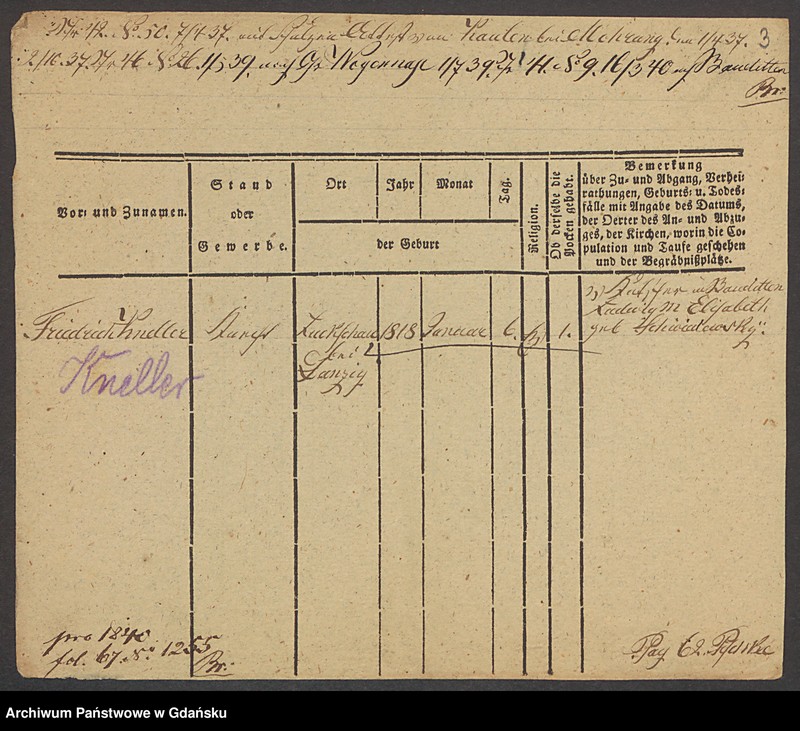 42. No. 50. 7/4 37. mit von Kauten bei Mohrung. den 1/4 37. 3
2/10. 37. 46 No 26. 39. nach Gr Wogennap 1/7 39. 41. No 9. 16/3 40 nach Bauditten
Br:
Vor: und Zunamen.
Stand
oder
Gewerbe.
Ort
Jahr
Monat
Tag.
der Geburt
Religion.
Ob derselbe die
Pocken gehabt.
Bemerkung
über Zu- und Abgang, Verhei-
rathungen, Geburts- u. Todes-
fälle mit Angabe des Datums,
der Oerter des An- und Abzu-
ges, der Kirchen, worin die Co-
pulation und Taufe geschehen
und der Begräbnißplätze.
Friedrich Kneller
Knecht
1818 Januar 6. 1.
bei
Danzig
in Bauditten
Ludwig m Elisabeth
geb Schwiatowsky.
Kneller
pro 1840
fol. 67. No. 1255
Br:
Pag 62.
Archiwum Państwowe w Gdańsku